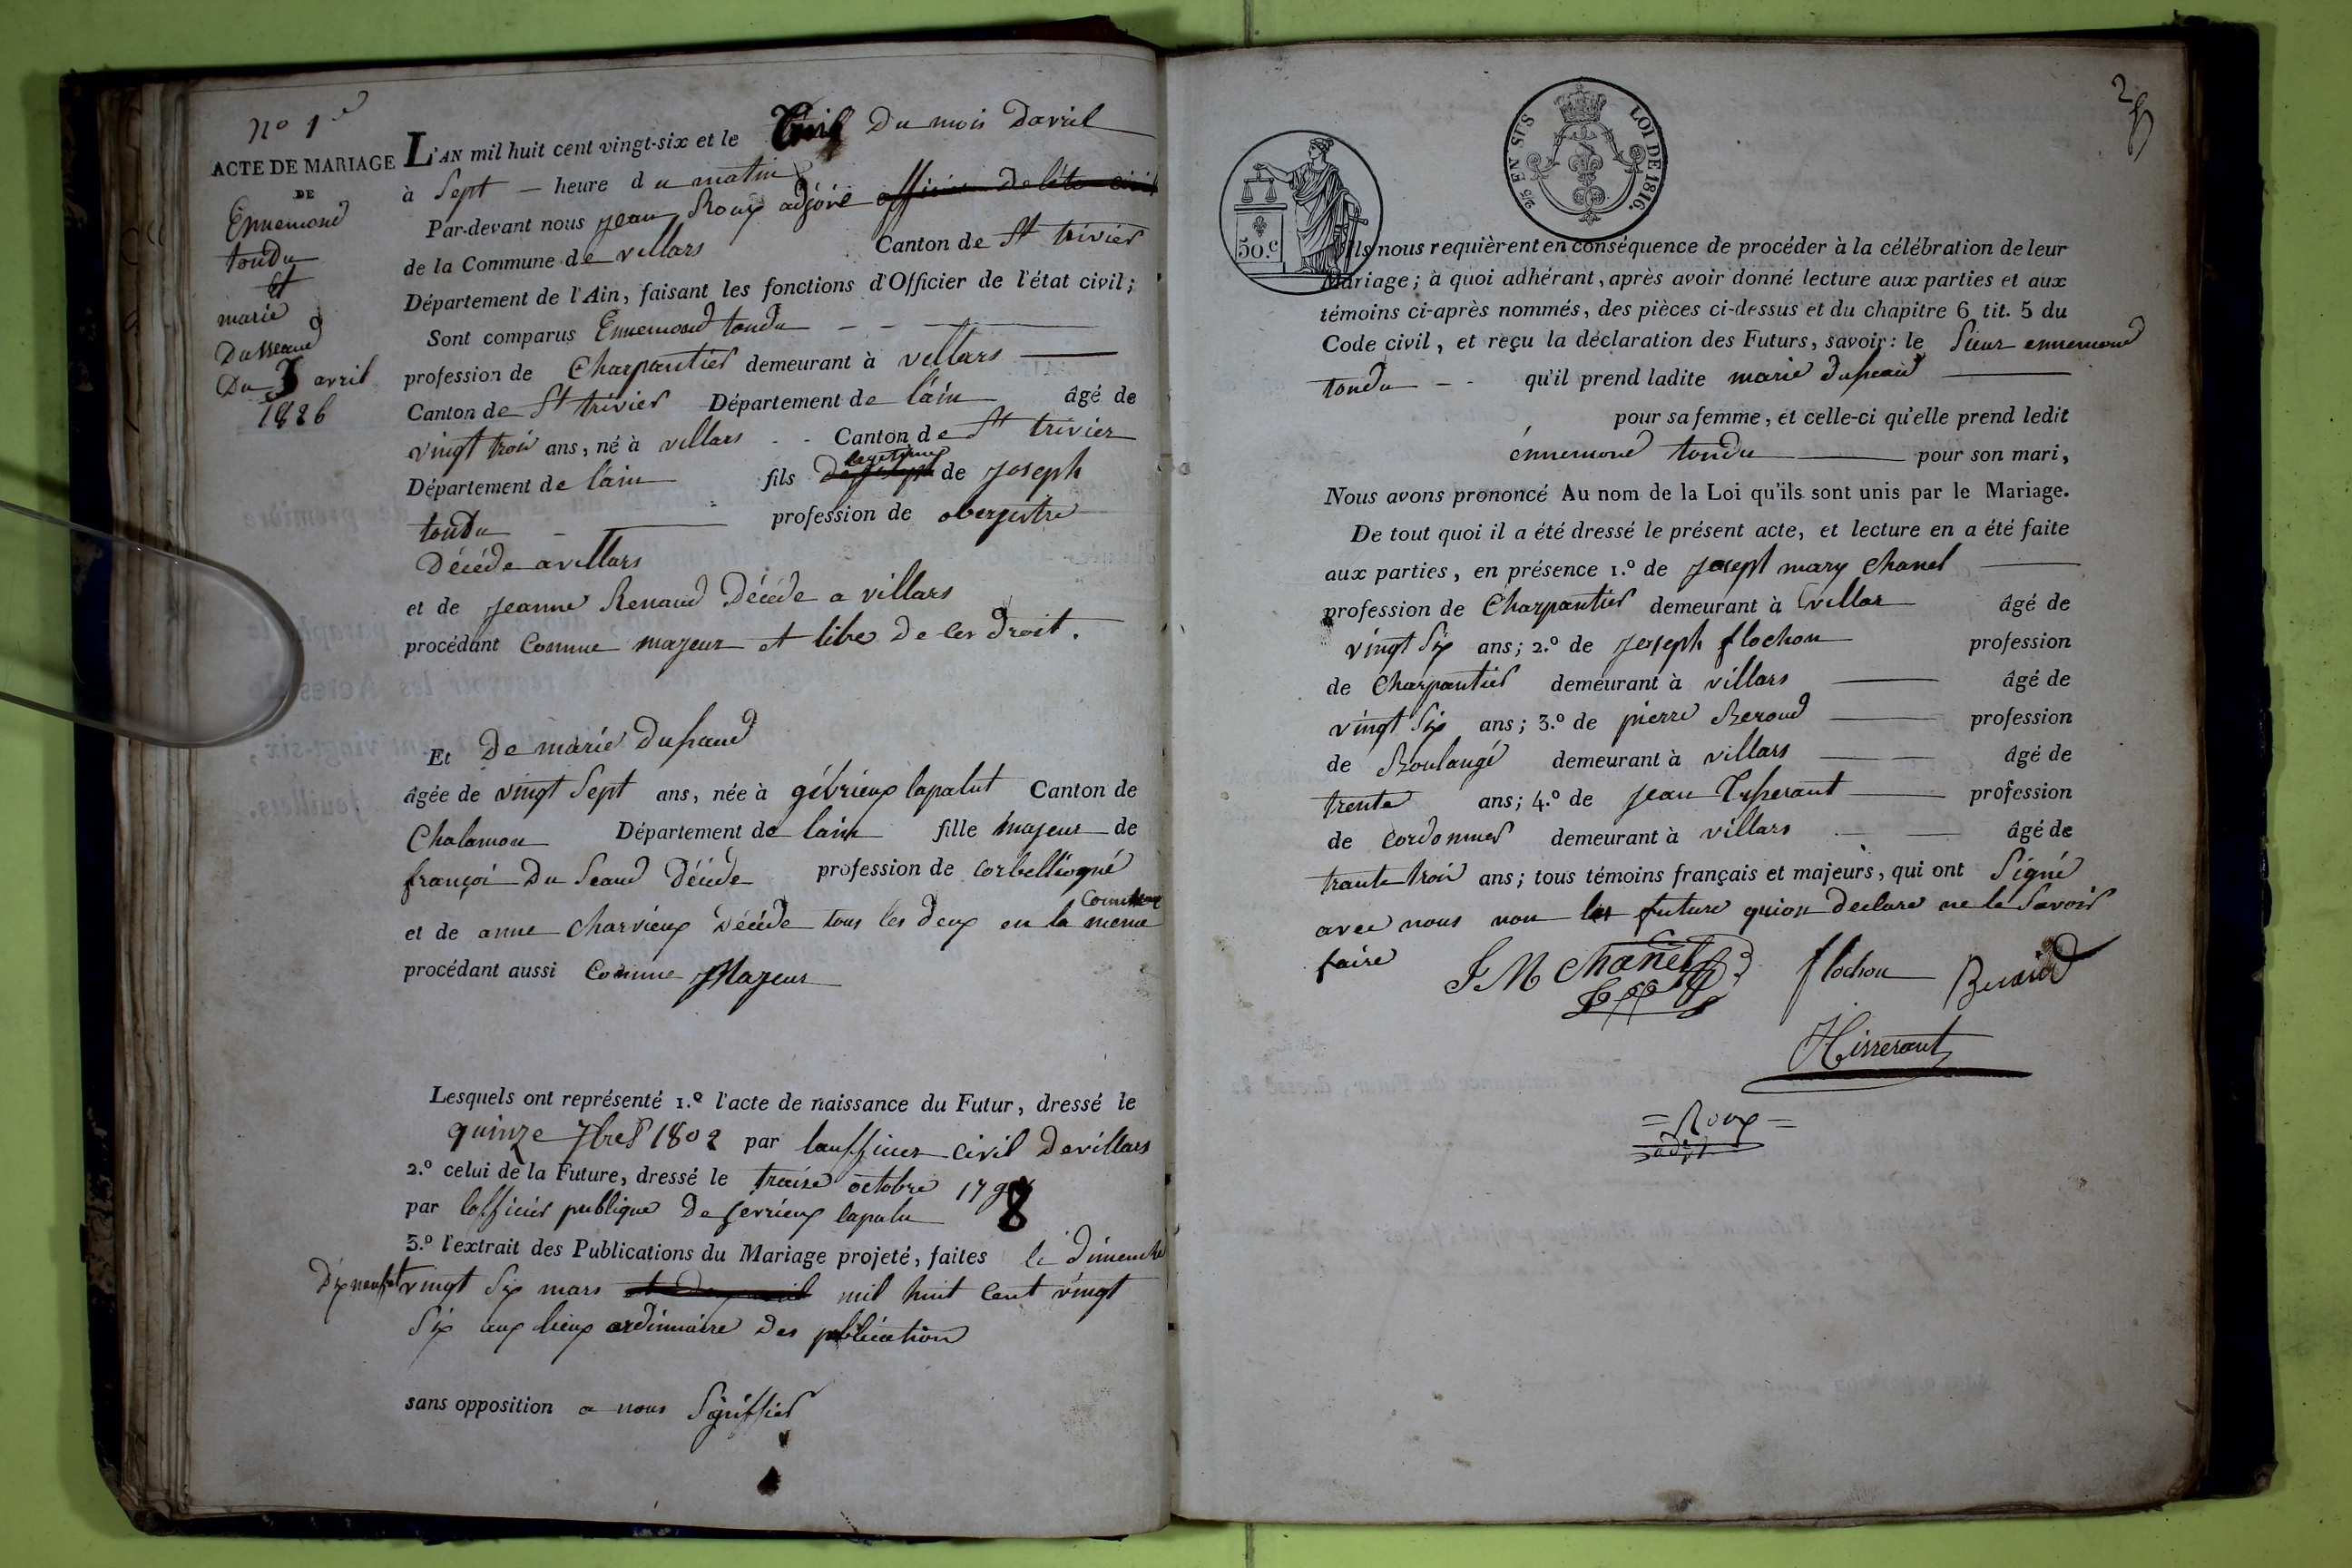 No 1er
ACTE DE MARIAGE
DE
Ennemond
tondu
et
marie
Dusseaud
Du 3 avril
1826
L'AN mil huit cent vingt-six et le trois Du mois Davril
à Sept — heure du matin
Par-devant nous jean Roux adjoint officier de léta civil
de la Commune de villars Canton de St trivier
Département de l'Ain, faisant les fonctions d'Officier de l'état civil;
Sont comparus Ennemond tondu
profession de Charpantier demeurant à villars
Canton de St trivier Département de lain âgé de
vingt trois ans, né à villars Canton de St trivier
Département de lain fils legetime de joseph
tondu profession de obergistre
Décéde a villars
et de jeanne Renaud Décéde a villars
procédant comme majeur et libre de ces droit.
Et De marie Duseaud
âgée de vingt Sept ans, née à gévrieux lapalut Canton de
Chalamon Département de lain fille majeur de
françoi Du Seaud Décéde profession de
et de anne Charvieux Décéde tous les deux en la meme Commune
procédant aussi Comme Majeur
Lesquels ont représenté 1.º l'acte de naissance du Futur, dressé le
quinze 7bres 1802 par laufficier civil de villars
2.º celui de la Future, dressé le traise octobre 1798
par lofficier publique de gevrieux lapalu
3.º l'extrait des Publications du Mariage projeté, faites le dimenche
Dix neuf et vingt Six mars mil huit Cent vingt
Six aux lieux ordinnaire des publication
sans opposition a nous Signiffier
2
2/5 EN SUS
LOI DE 1816.
50.c
Ils nous requièrent en conséquence de procéder à la célébration de leur
Mariage; à quoi adhérant, après avoir donné lecture aux parties et aux
témoins ci-après nommés, des pièces ci-dessus et du chapitre 6 tit. 5 du
Code civil, et reçu la déclaration des Futurs, savoir: le Sieur ennemond
tondu qu'il prend ladite marie duseaud
pour sa femme, et celle-ci qu'elle prend ledit
énnemond tondu pour son mari,
Nous avons prononcé Au nom de la Loi qu'ils sont unis par le Mariage.
De tout quoi il a été dressé le présent acte, et lecture en a été faite
aux parties, en présence 1.º de joseph mary Chanel
profession de Charpantier demeurant à villar âgé de
vingt Six ans; 2.º de joseph flochon profession
de Charpantier demeurant à villars âgé de
vingt Six ans; 3.º de pierre Beroud profession
de Boulangé demeurant à villars âgé de
trente ans; 4.º de jean profession
de cordonnier demeurant à villars âgé de
trante trois ans; tous témoins français et majeurs, qui ont Signé
avec nous non les future quion declare ne le Savoir
faire
J M Chanel
flochon
Beraud
Hisserant
= Roux =
adjt